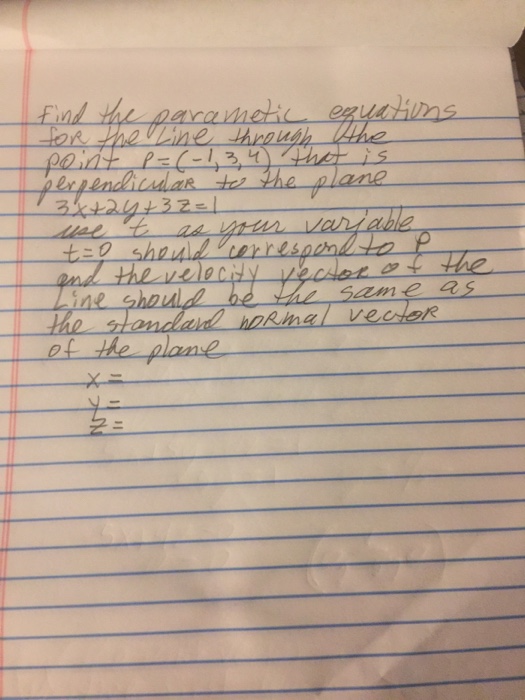 Find the parametic equations
for the Line through the
point P=(-1,3,4) that is
perpendicular to the plane
3x+2y+3z=1
use t as your variable
t=0 should correspond to P
and the velocity vector of the
Line should be the same as
the standard normal vector
of the plane
x=
y=
z=